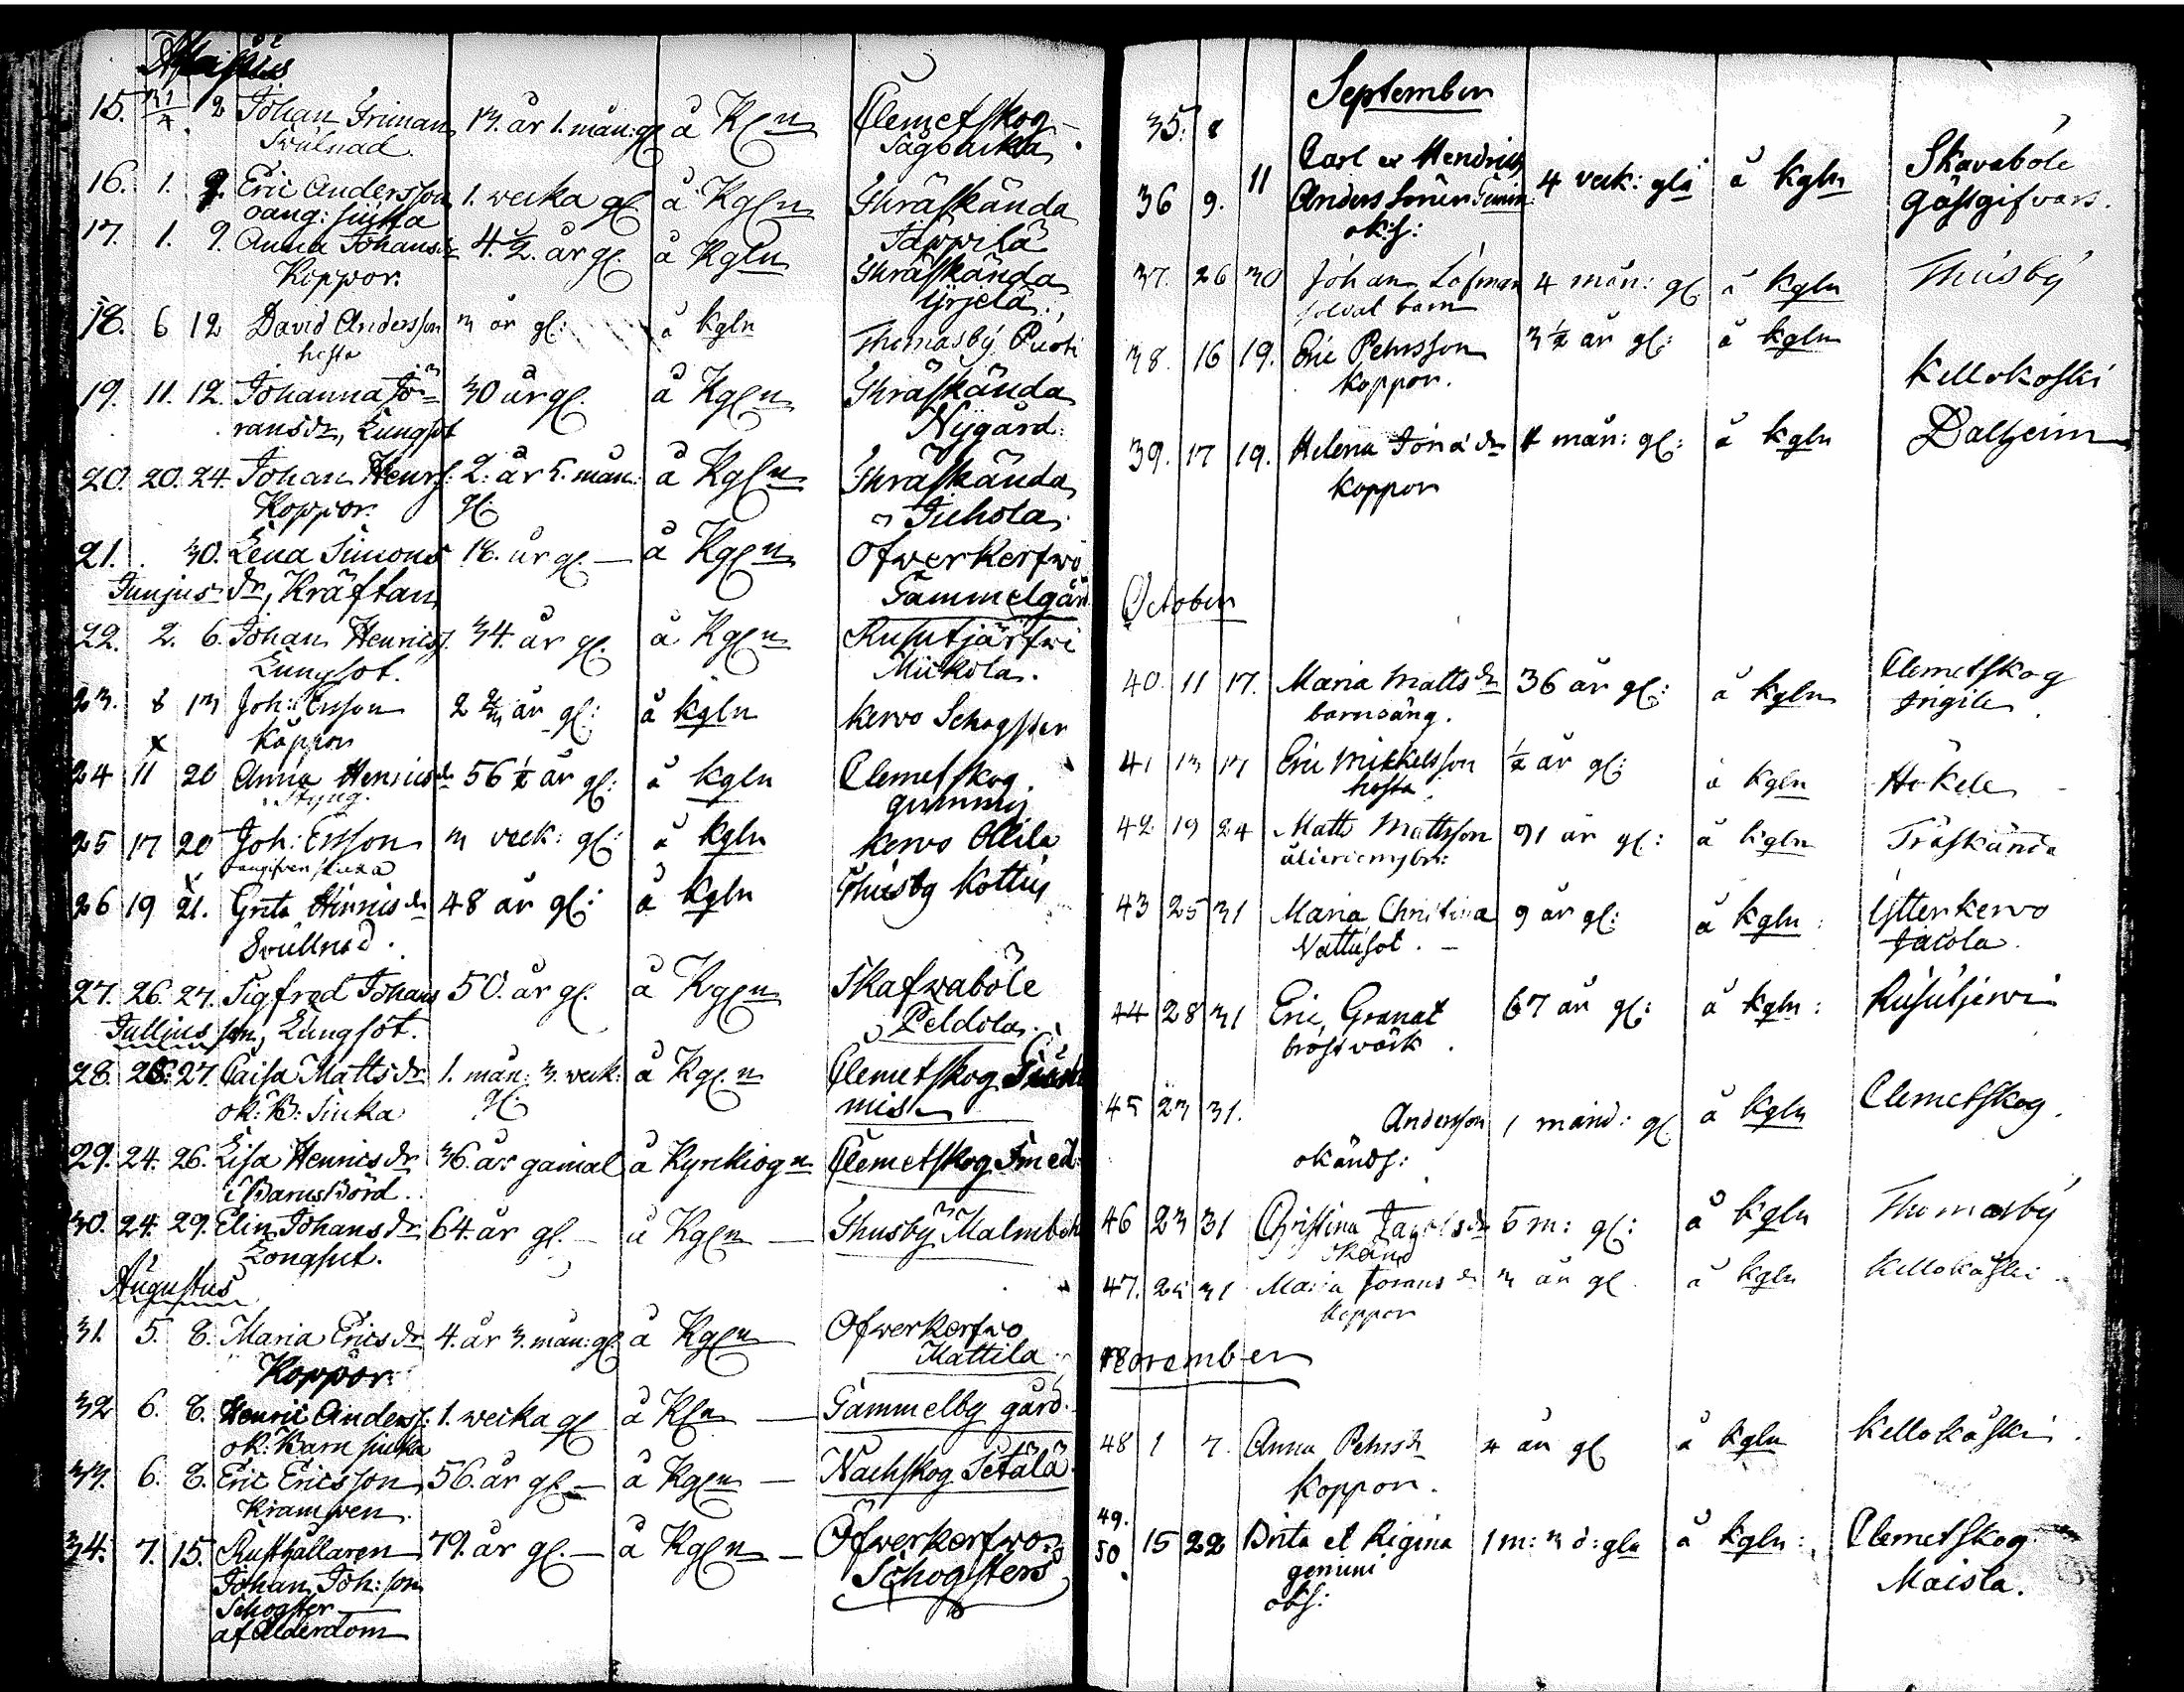 15. 31/7. 2 Johan Friman 13. år 1. mån: gl å Kgln Clemetskog
Svulnad. Sågbacka
16. 1. 9. Eric Andersson 1. wecka gl å Kgln Thräskända
oang: siuka Jäppilä
17. 1. 9. Anna Johansdr 4. ½. år gl. å Kgln Thräskända
Koppor. Yrjelä
18. 6 12 David Andersson 3 år gl: å kgln Thomasby Puoti
hosta
19. 11. 12. Johanna Jö= 30 år gl. å Kgln Thräskända
ransdr, Lungsot Nygård.
20. 20. 24. Johan Henrs: 2. år 5. mån: å Kgln Thräskända
Koppor. gl: Juhola
21. 30. Lena Simons 18. år gl. — å Kgln Ofwerkerfwo
Junjus dr, Kräftan Gammelgård
22. 2. 6. Johan Henrics. 34. år gl. å Kgln Rusutjärfwi
Lungsot. Mickola.
23. 8 13 Joh: Ersson 2 2/3 år gl: å kgln Kervo Schogster
Koppor
24 11 20 Anna Henricsdr 56 ½ år gl: å kgln Clemetskog
Styng. gummis
25 17 20 Joh: Ersson 3 veck: gl: å kgln Kervo Ollila
oangifven siuka
26 19 21. Greta Hinricsdr 48 år gl: å kgln Thusby Kottis
Svullnad.
27. 26. 27. Sigfred Johans 50. år gl. å Kgln Skafwaböle
Jullius son, Lungsot. Peldola.
28. 26. 27. Caisa Mattsdr 1. mån: 3. weck: å Kgl.n Clemetskog
ok: B: Siuka gl:
29. 24. 26. Lisa Henricsdr 36. år gamal å Kyrckiogn Clemetskog Smed:
i BarnsBörd.
30. 24. 29. Elin Johansdr 64. år gl. — å Kgln — Thusby Malmbok
Longsut.
Augustus
31. 5. 8. Maria Ericsdr 4. år 3. mån: gl. å Kgln Ofwerkerfwo
Koppor. Mattila
32 6. 8. Henric Anderss: 1. wecka gl å Kgln — Gammelby gård.
ok: Barn siuka
33. 6. 8. Eric Ericsson 56. år gl. — å Kgln — Nachskog Setälä
Krampen.
34. 7. 15. Rusthållaren 79. år gl. — å Kgln — Ofwerkerfwo
Johan Joh: son Schogsters
Schogster
af Ålderdom
September
35. 8
36 9. 11 Carl et Hendrich 4 veck: gla å kgln Skavaböle
Anders Söner gästgifvars.
ok: s:
37. 26 30 Johan Löfman 4 mån: gl å kgln Thusby
soldat barn
38. 16 19. Eric Petersson 3 ½ år gl: å kgln Kellokoski
koppor.
39. 17 19. Helena mån: gl: å kgln Dalheim
koppor
October
40. 11 17. Maria Mattsdr 36 år gl: å kgln Clemetskog
barnsäng. Frigile
41 13 17 Eric Mickelsson ½ år gl: å kgln Hökele
hosta
42 19 24 Matts Mattsson 91 år gl: å kgln Träskända
43 25 31 Maria Christina 9 år gl: å kgln: Ytterkervo
Nattusot. — Jacola.
44 28 31 Eric Granat 67 år gl: å kgln: Rusutjervi
bröst värk.
45 23 31. Andersson 1 månd: gl å kgln Clemetskog.
okänds:
46 23 31 Christina 5 m: gl: å kgln Thomasby
okänd
47. 25 31 Maria Joransdr 3 år gl å kgln Kellokoski
koppor
November
48 1 7. Anna Petersdr 4 år gl å kgln Kellokoski.
koppor.
49.
50 15 22 Brita et Regina 1 m: 3 d: gla å kgln: Clemetskog
gemini Maisla.
obs: